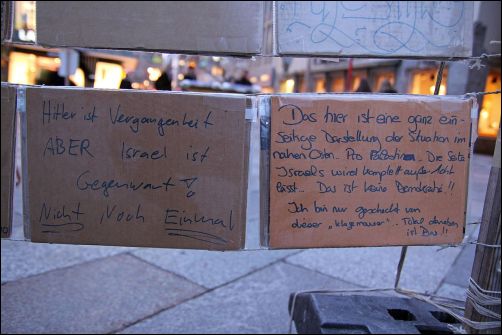 Hitler ist Vergangenheit
ABER Israel ist
Gegenwart!
Nicht Noch Einmal
Das hier ist eine ganz ein-
seitige Darstellung der Situation im
nahen Osten. Pro Palästina.. Die Seite
Israels wird komplett außer Acht
lasst... Das ist keine Demokratie!!
Ich bin nur geschockt von
dieser "Klagemauer"... Total daneben
ist Das!!